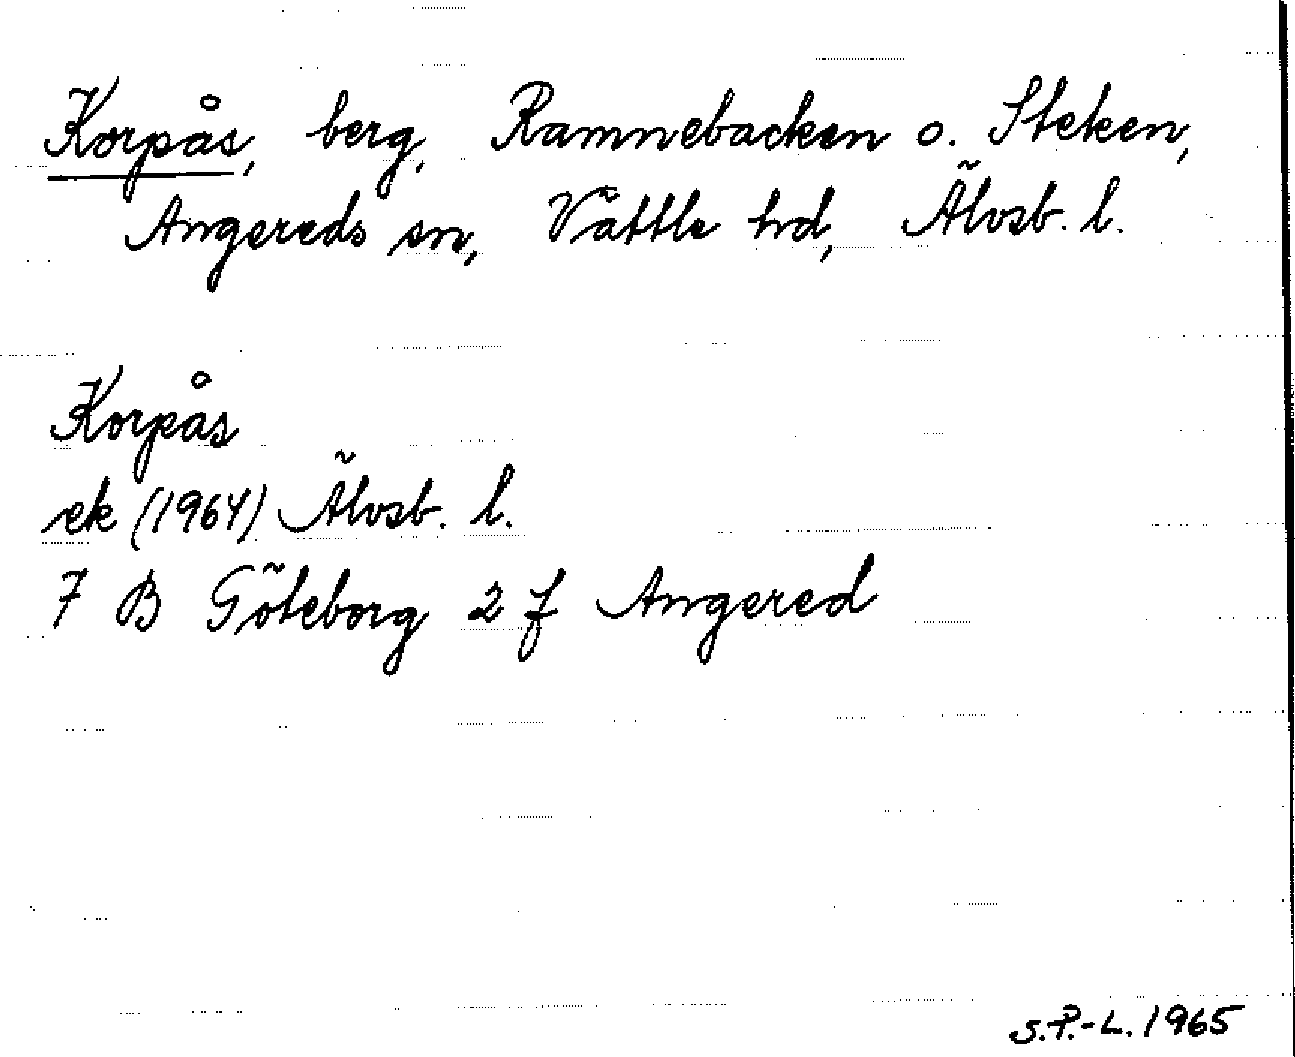 Korpås, berg, Ramnebacken o. Steken,
Angereds sn, Vättle hd, Älvsb. l.
Korpås
ek (1964) Älvsb. l.
7 B Göteborg 2 f Angered
S.P.-L. 1965